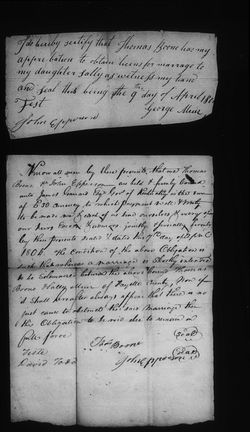 I do hereby certify that Thomas Boone has my
approbation to obtain licens for marriage to
my daughter Sally as witness my hand
and seal this being the 9th day of April
Test George Muir
John Epperson
Know all men by these presents, that we Thomas
Boone & John Epperson are held & firmly bound
unto James Garrard Esqr Govr of Kentucky in the
£50 currency to which payment well & truly
to be made we & each of us bind ourselves & every of
our heirs Executors & jointly severally firmly
by these presents sealed & dated this 9th day of
The Condition of the above Obligation is
such that whereas a marriage is Shortly intended
to be Solemnized between the above bound Thomas
Boone & Sally Muir of Fayette County, Now if
it shall hereafter always appear that there is no
just cause to obstruct the said marriage then
this Obligation to be void else to remain in
full force
Teste Thos Boone Seal
David Todd John Epperson Seal